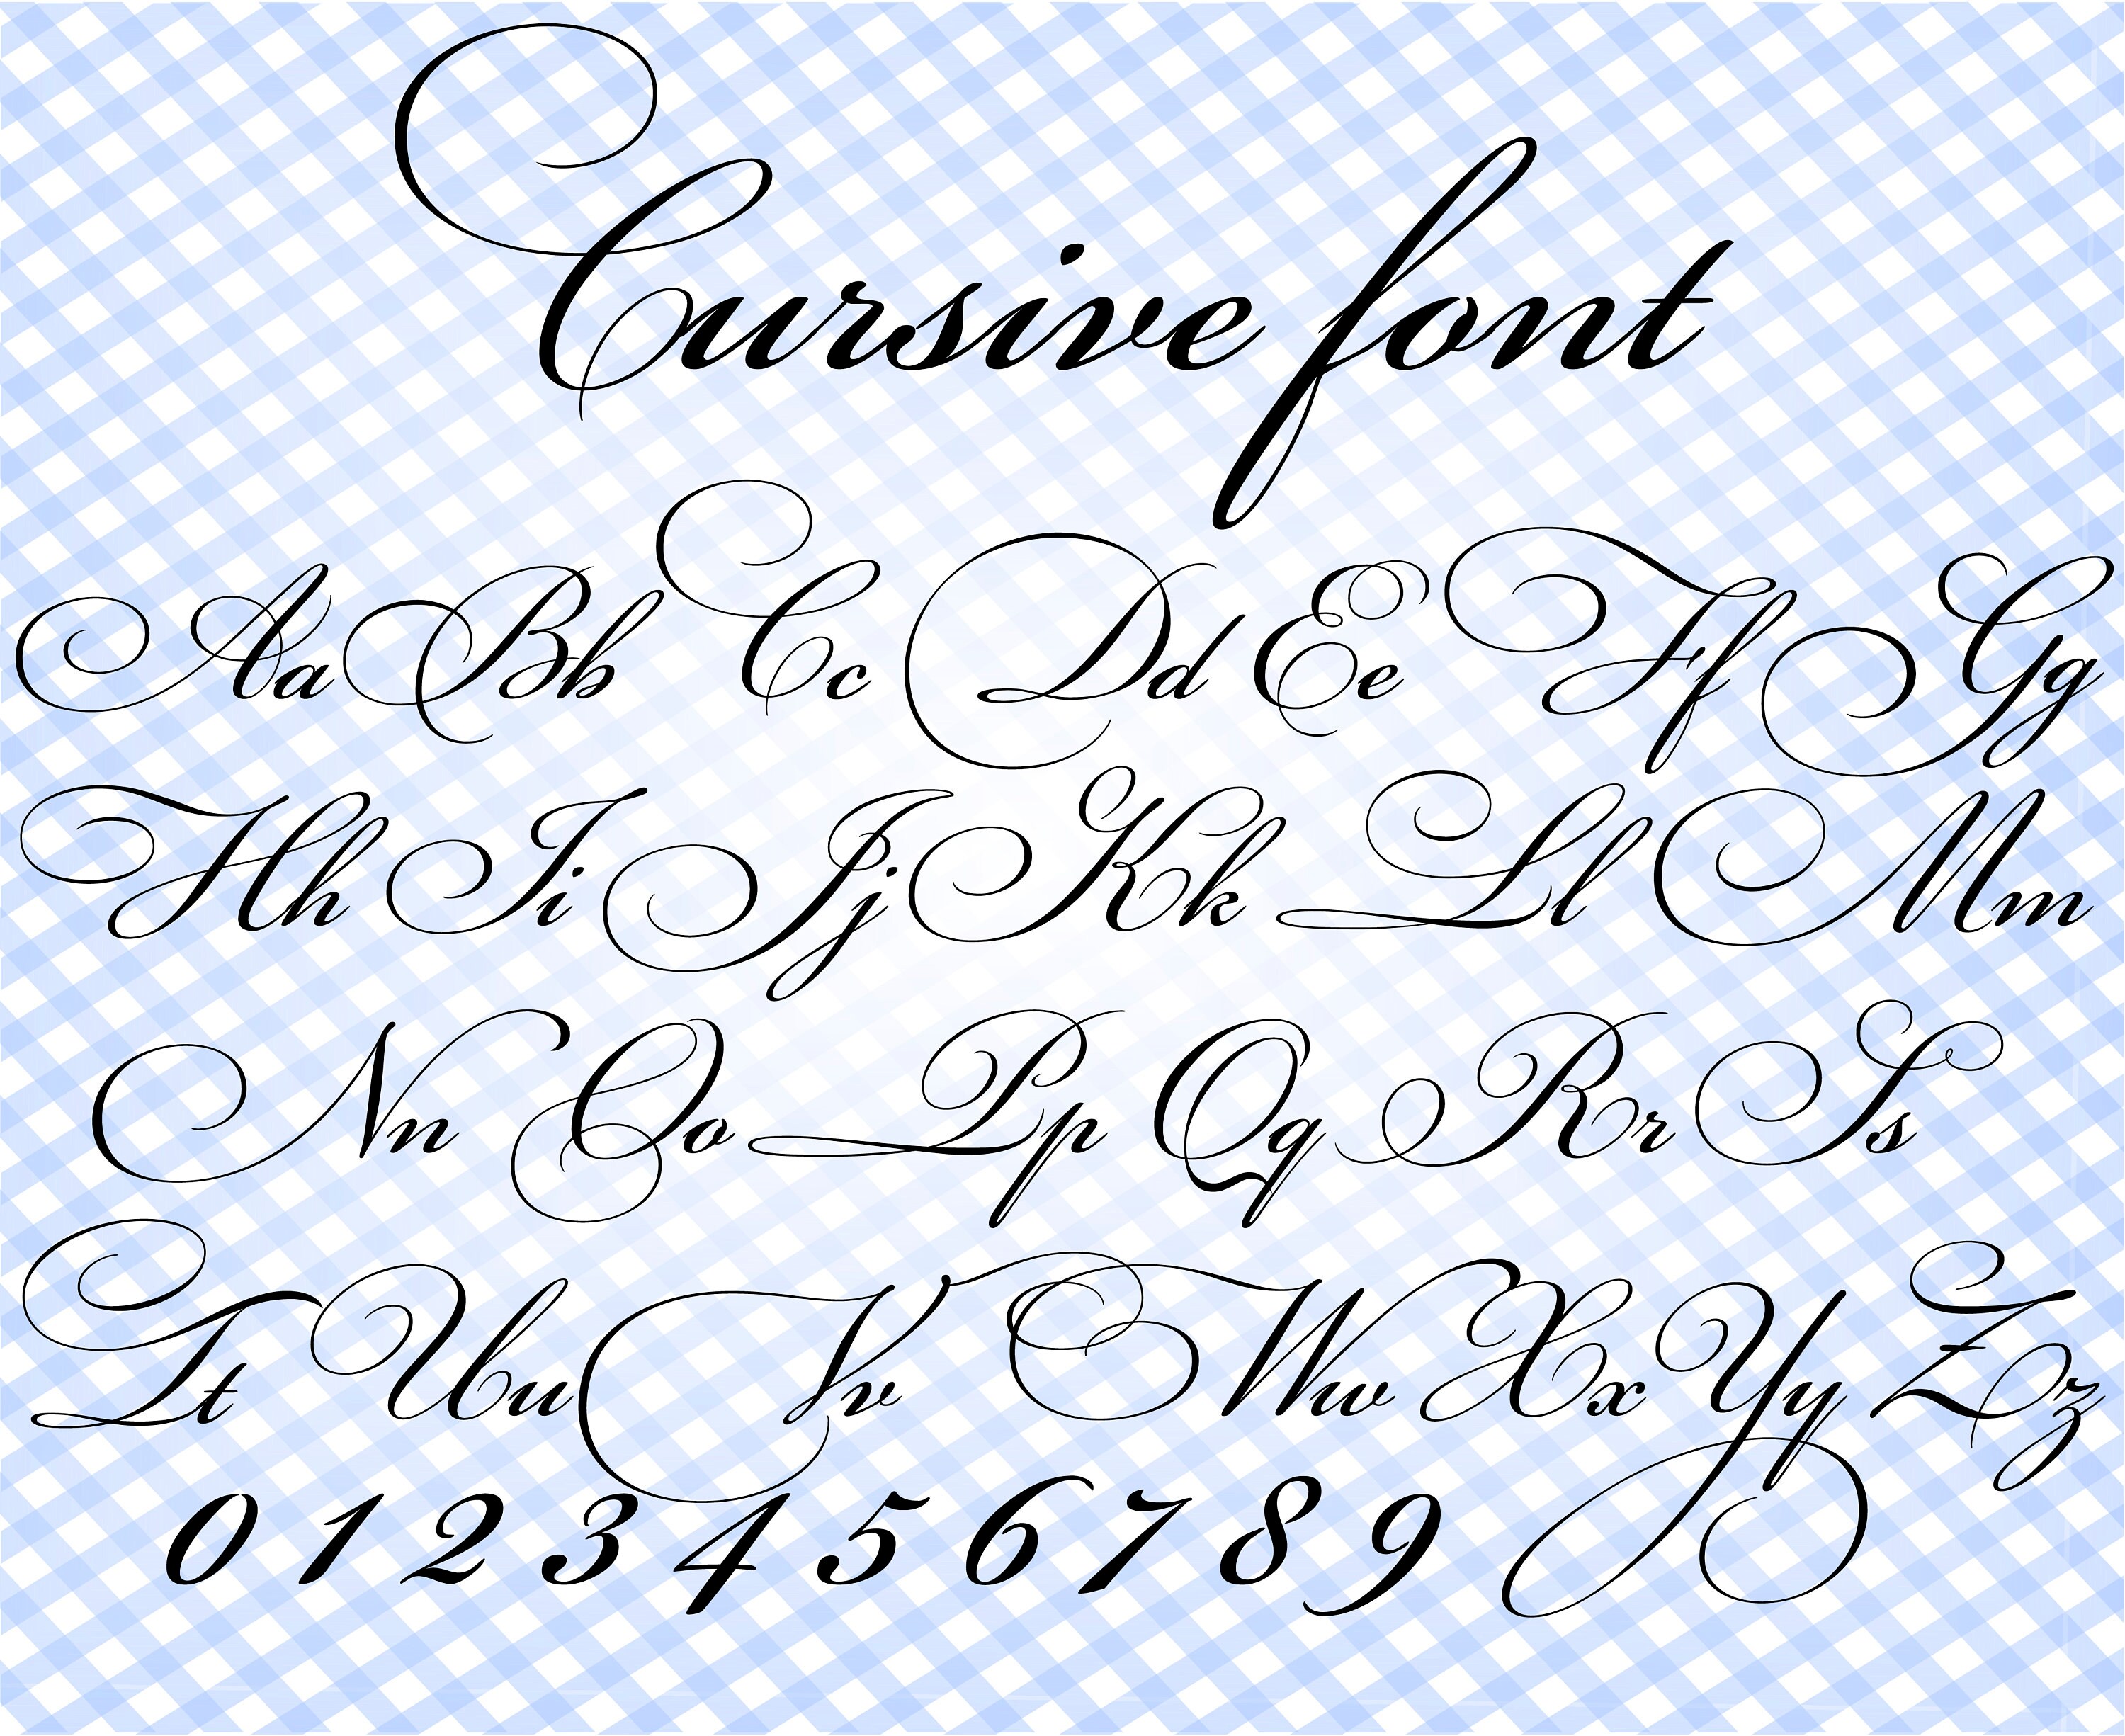 Cursive font
Aa Bb Cc Dd Ee Ff Gg
Hh Ii Jj Kk Ll Mm
Nn Oo Pp Qq Rr Ss
Tt Uu Vv Ww Xx Yy Zz
0 1 2 3 4 5 6 7 8 9